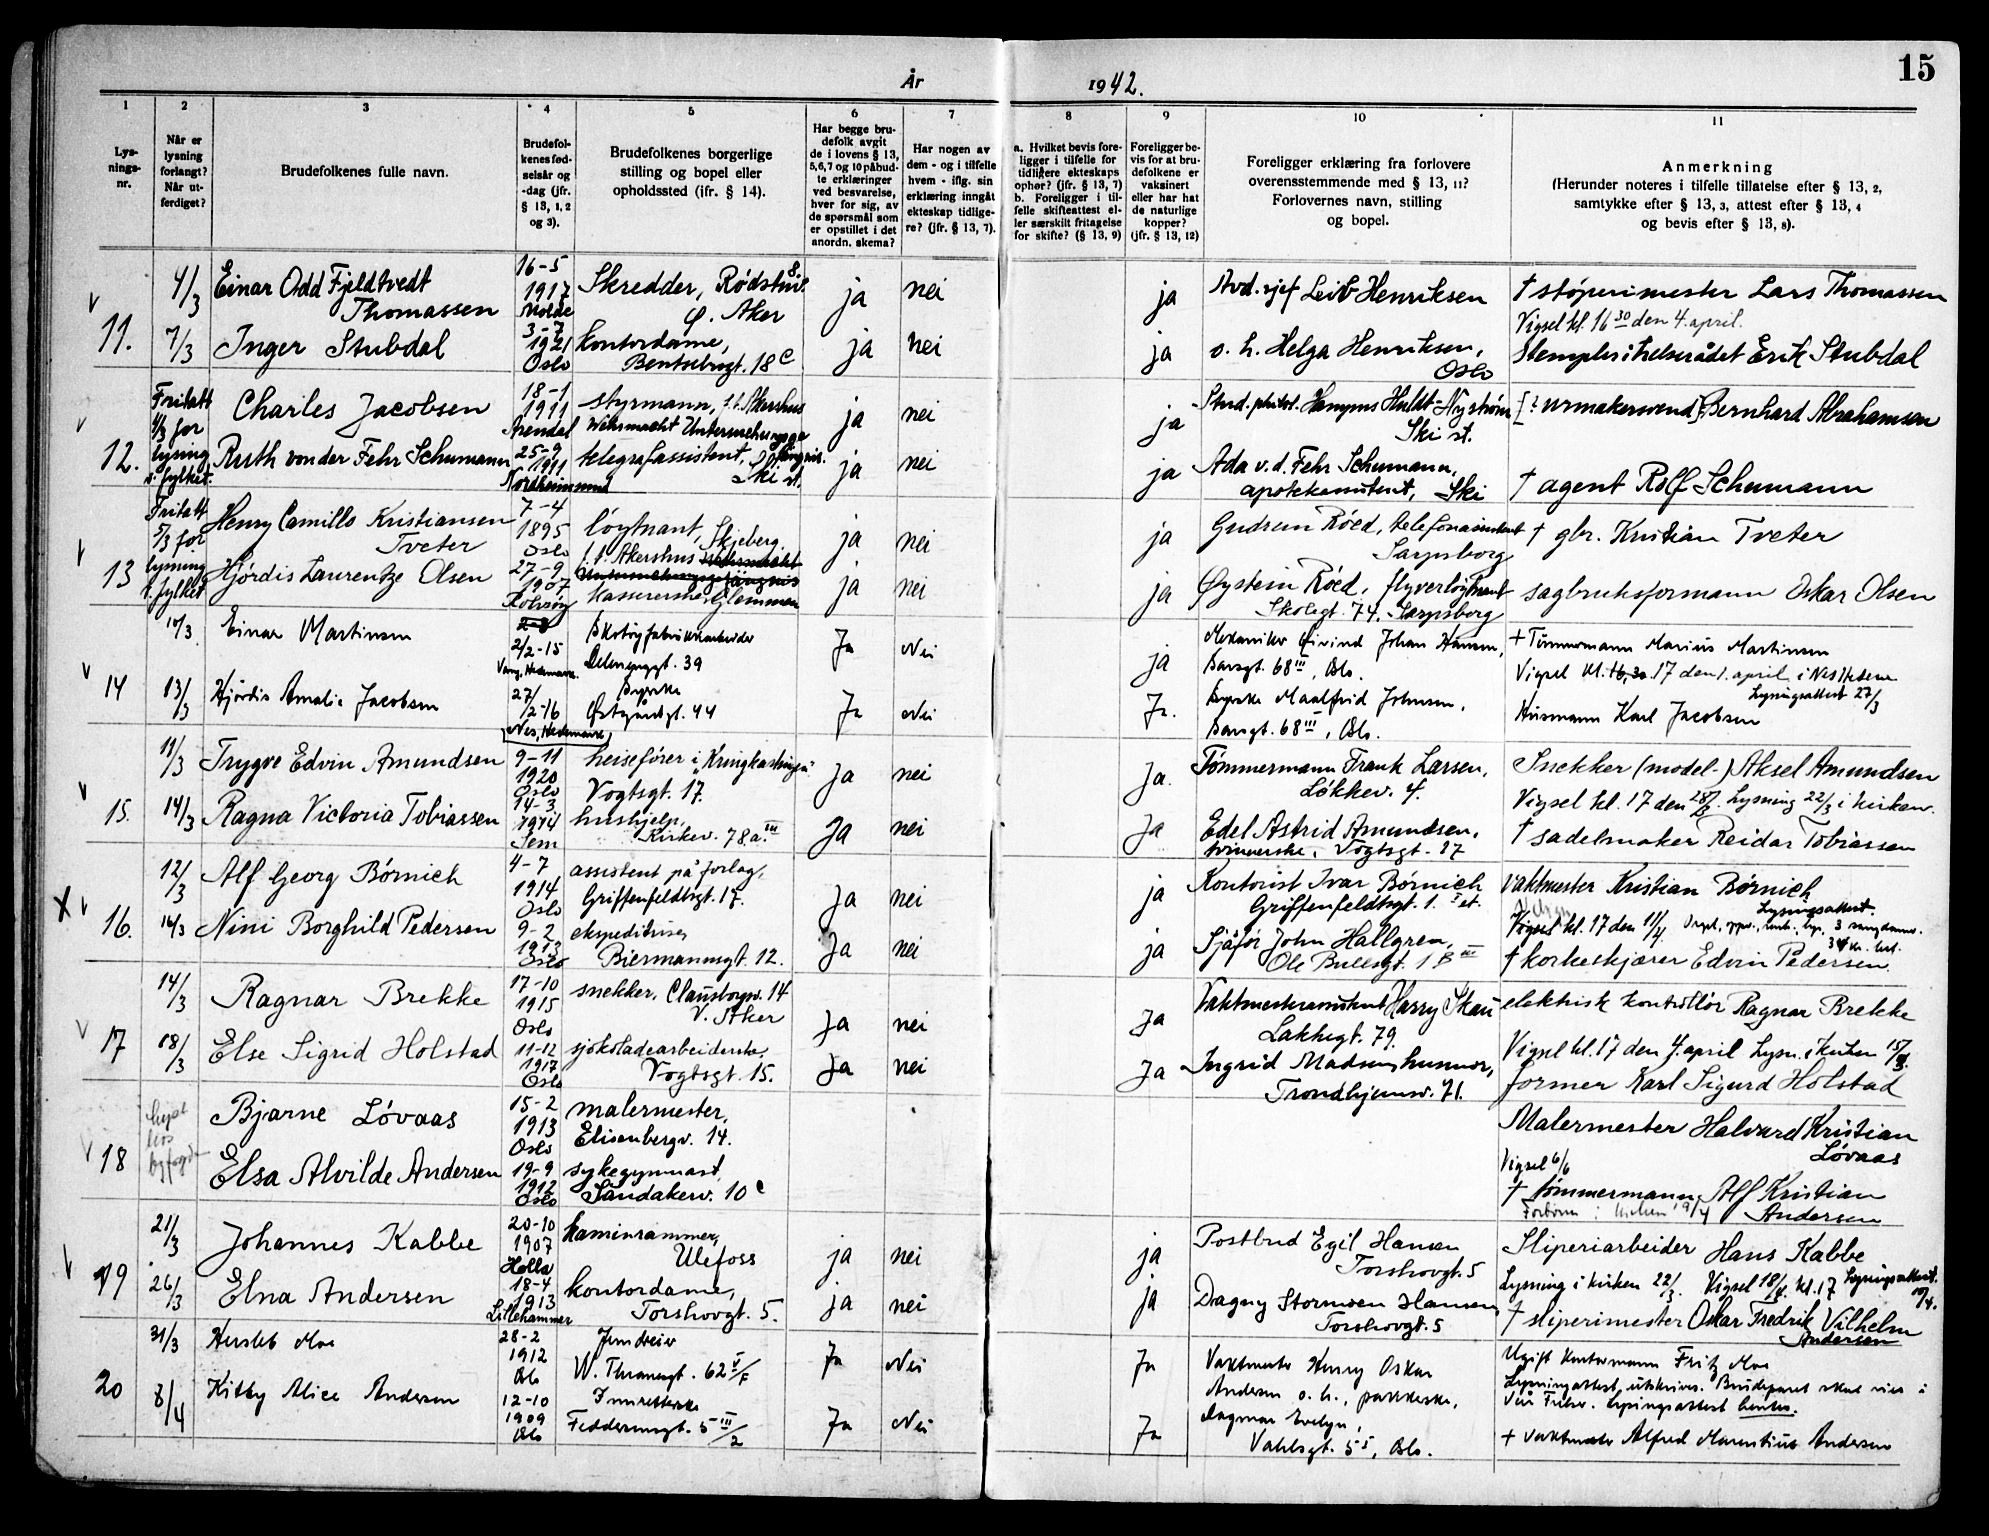 År 1942.
15
1
2
3
4
5
6
7
8
9
10
11
Lys-
nings-
nr.
Når er
lysning
forlangt?
Når ut-
ferdiget?
Brudefolkenes fulle navn.
Brudefol-
kenes fød-
selsår og
-dag (jfr.
§ 13, 1, 2
og 3).
Brudefolkenes borgerlige
stilling og bopel eller
opholdssted (jfr. § 14).
Har begge bru-
defolk avgit
de i lovens § 13,
5,6,7 og 10 påbud-
te erklæringer
ved besvarelse,
hver for sig, av
de spørsmål som
er opstillet i det
anordn. skema?
Har nogen av
dem - og i tilfelle
hvem - iflg. sin
erklæring inngåt
ekteskap tidlige-
re? (jfr. § 13, 7).
a. Hvilket bevis fore-
ligger i tilfelle for
tidligere ekteskaps
ophør? (jfr. § 13, 7)
b. Foreligger i til-
felle skifteattest el-
ler særskilt fritagelse
for skifte? (§ 13, 9)
Foreligger be-
vis for at bru-
defolkene er
vaksinert
eller har hat
de naturlige
kopper?
(jfr. § 13, 12)
Foreligger erklæring fra forlovere
overensstemmende med § 13, 11?
Forlovernes navn, stilling
og bopel.
Anmerkning
(Herunder noteres i tilfelle tillatelse efter § 13, 2,
samtykke efter § 13, 3, attest efter § 13, 4
og bevis efter § 13, 8).
11.
4/3
7/3
Einar Odd Fjeldtvedt
Thomassen
16-5
1917
Molde
Skredder, Rødstuv. 8.
Ø. Aker
ja
nei
ja
Avd. sjef Leif Henriksen
† støperimester Lars Thomassen
Vigsel kl. 16 30 den 4. april.
Inger Stubdal
3-7
1921
Oslo
kontordame,
Bentsebrugt. 18 c
ja
nei
ja
o. h. Helga Henriksen,
Oslo
Stempler i helserådet Erik Stubdal
12.
Fritatt
4/3 for
lysning
i fylket.
Charles Jacobsen
18-1
1911
Arendal
styrmann, f. t. Akershus
Wehrmacht Untersuchungsge
fängnis.
ja
nei
ja
Stud. philol. Hamyns Huldt-Nystrøm
Ski st.
[? urmakersvend] Bernhard Abrahamsen
Ruth von der Fehr Schumann
25-9
1911
Nordheimsund
telegrafassistent,
Ski st.
ja
nei
ja
Ada v. d. Fehr Schumann,
apotekassistent, Ski
† agent Rolf Schumann
13
Fritatt
5/3 for
lysning
i fylket
Henry Camillo Kristiansen
Tveter
7-4
1895
Oslo
løytnant, Skjeberg
f. t. Akershus
ja
nei
ja
Gudrun Røed, telefonassistent
Sarpsborg
† gbr. Kristian Tveter
Hjørdis Laurentze Olsen
27-9
1907
Rolvsøy
Kassererske, Glemmen
ja
nei
ja
Øystein Røed, flyverløytnant
Skolegt. 74. Sarpsborg
sagbruksformann Oskar Olsen
14
10/3
13/3
Einar Martinsen
2/2-15
Vang, Hedemark.
Skotøyfabrikkarbeider
Delenenggt. 39
Ja
Nei
ja
Mekaniker Øivind Johan Hansen,
Darsgt. 68 III, Oslo.
† Tømmermann Marius Martinsen
Vigsel kl. 16,30 17 den 1. april i Nes Hedem
Lysningsattest 27/3
Hjørdis Amalie Jacobsen
27/
2-16
Nes, Hedemark
Syerske
Østgårdsgt. 44
Ja
Nei
Ja.
Syerske Maalfrid Johnsen,
Darsgt. 68 III, Oslo.
Husmann Karl Jacobsen
15.
11/3
14/3
Trygve Edvin Amundsen
9-11
1920
Oslo
heisefører i "Kringkastingen"
Vogtsgt. 17.
Ja
nei
Ja.
Tømmermann Frank Larsen,
Løkkev. 4.
Snekker (model-) Aksel Amundsen
Vigsel kl. 17 den 28/3. Lysning 22/3 i kirken.
Ragna Victoria Tobiassen
14-3
1914
Sem
hushjelp,
Kirkev. 78 a. III
Ja
nei
Ja
Edel Astrid Amundsen,
tvinnerske, Vogtsgt. 17
† sadelmaker Reidar Tobiassen
X
16.
12/3
14/3
Alf Georg Børnich
4-7
1914
Oslo
assistent på forlag,
Griffenfeldtsgt. 17.
Ja
nei
ja
Kontorist Ivar Børnich
Griffenfeldtsgt. 1. I et.
Vaktmester Kristian Børnich
Lysningsattest.
Vigsel kl. 17 den 11/4.
Nini Borghild Pedersen
9-2
1913
Oslo
ekspeditrise,
Biermannsgt. 12.
Ja
nei
ja
Sjåfør John Hallgren,
Ole Bullsgt. 1 B III
† korkeskjærer Edvin Pedersen.
17
14/3
18/3
Ragnar Brekke
17-10
1915
Oslo
snekker. Clausborgv. 14
V. Aker
Ja
nei
Ja
Vaktmesterassistent Harry Skau
Lakkegt. 79.
elektrisk kontrollør Ragnar Brekke
Vigsel kl. 17 den 4. april Lysn. i kirken 15/3.
Else Sigrid Holstad
11-12
1917
Oslo
sjokoladearbeiderske,
Vogtsgt. 15.
Ja
nei
Ja
Ingrid Madsen, husmor,
Trondhjemsv. 71.
former Karl Sigurd Holstad
18
lyst
hos
byfogd
Bjarne Løvaas
15-2
1913
Oslo
malermester,
Elisenbergv. 14.
Malermester Halvard Kristian
Løvaas
Vigsel 6/6
Elsa Alvilde Andersen
19-9
1912
Oslo
sykegymnast,
Sandakerv. 10 c
† tømmermann Alf Kristian
Andersen
Forbønn i kirken 19/4
19
21/3
26/3
Johannes Kabbe
20-10
1907
Holla
kaminrammer,
Ulefoss
ja
nei
ja
Postbud Egil Hansen
Torshovgt. 5
Sliperiarbeider Hans Kabbe
Lysning i kirken 22/3. Vigsel 18/4. kl. 17 Lysningsattest.
Elna Andersen
18-4
1913
Lillehammer
kontordame,
Torshovgt. 5.
ja
nei
ja
Dagny Stormoen Hansen
Torshovgt. 5
† sliperimester Oskar Fredrik Vilhelm
Andersen
20
31/3
8/4
Hersleb Moe
28-2
1912
Oslo
Jerndreier
W. Thranesgt. 62 V/F
Ja
Nei
Ja
Vaktmester Henry Oskar
Andersen o. h., pakkerske,
Dagmar Evelyn,
Vahlsgt. 5 5, Oslo.
Ugift kontormann Fritz Moe
Lysningsattest utskrives. Brudeparet skal vies i
Vår Frelser. Lysningsattest hentes.
Kitty Alice Andersen
12-10
1909
Oslo
Innretterske
Feddersensgt. 5 III/2
Ja
Nei
Ja
† vaktmester Alfred Marentius Andersen